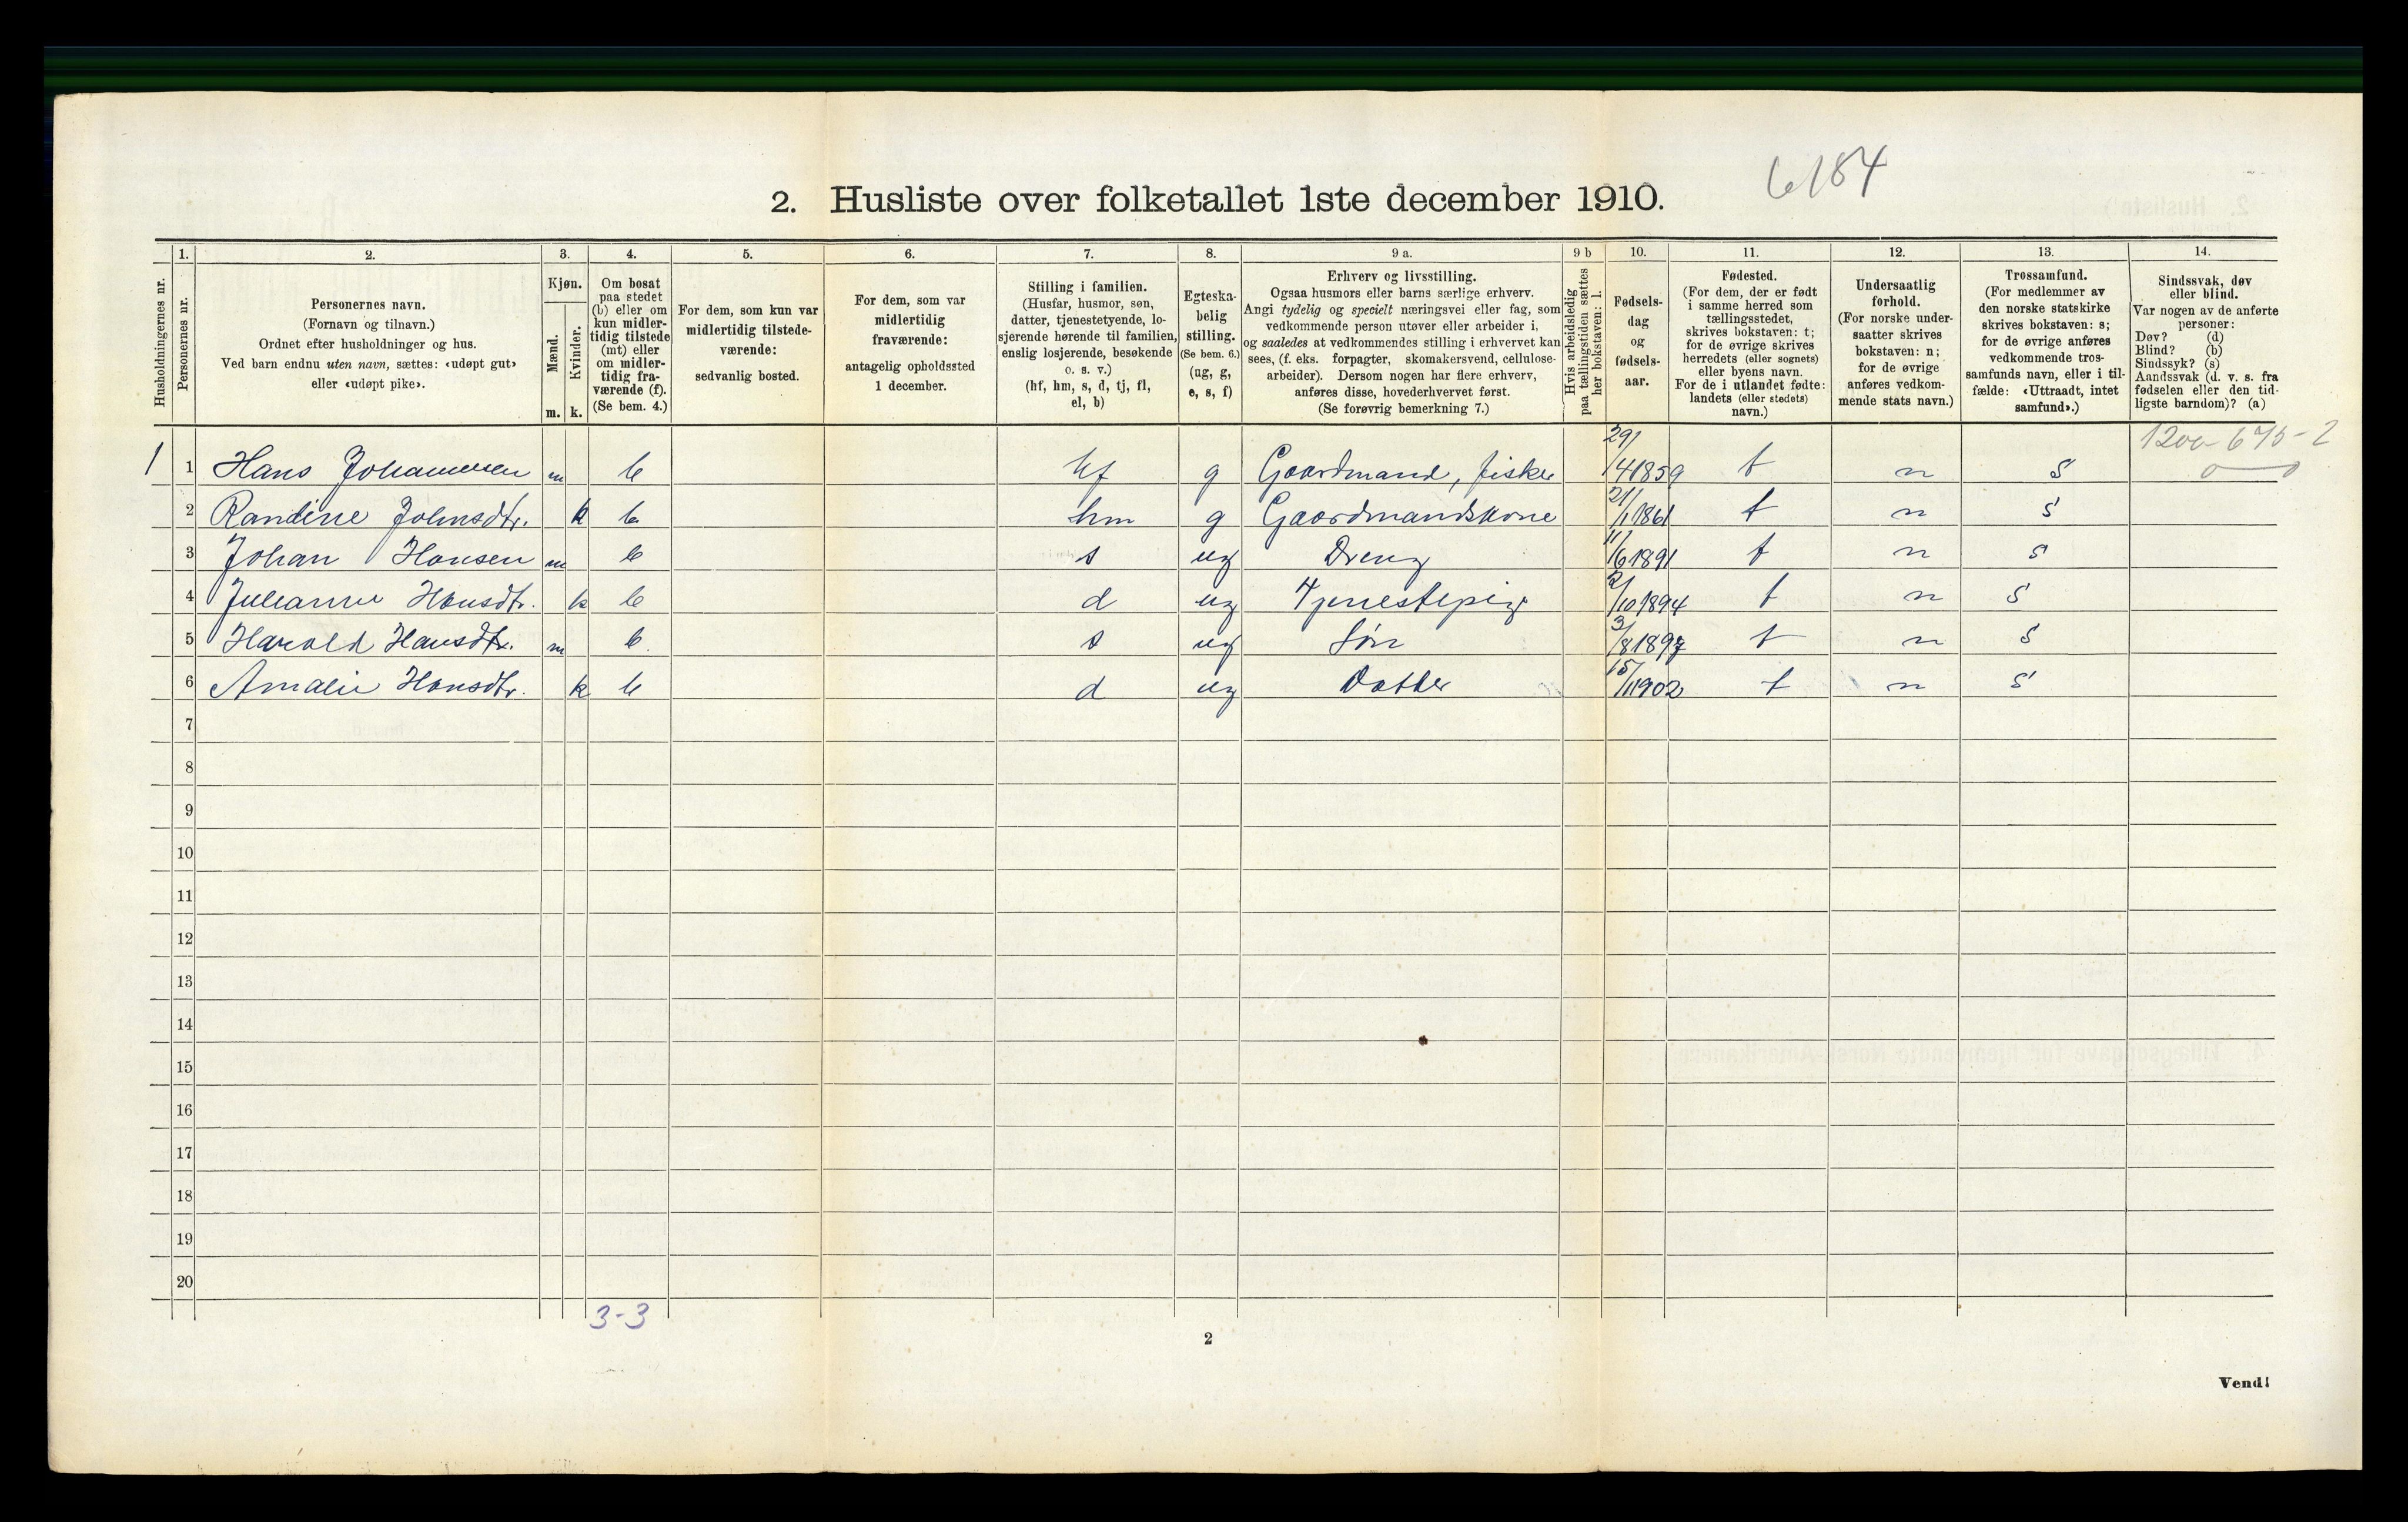 6184
2. Husliste over folketallet 1ste december 1910.
Husholdningernes nr.
1.
Personernes nr.
2.
Personernes navn.
(Fornavn og tilnavn.)
Ordnet efter husholdninger og hus.
Ved barn endnu uten navn, sættes: «udøpt gut»
eller «udøpt pike».
3.
Kjøn.
Mænd.
Kvinder.
m. k.
4.
Om bosat
paa stedet
(b) eller om
kun midler-
tidig tilstede
(mt) eller
om midler-
tidig fra-
værende (f).
(Se bem. 4.)
5.
For dem, som kun var
midlertidig tilstede-
værende:
sedvanlig bosted.
6.
For dem, som var
midlertidig
fraværende:
antagelig opholdssted
1 december.
7.
Stilling i familien.
(Husfar, husmor, søn,
datter, tjenestetyende, lo-
sjerende hørende til familien,
enslig losjerende, besøkende
o. s. v.)
(hf, hm, s, d, tj, fl,
el, b)
8.
Egteska-
belig
stilling.
(Se bem. 6.)
(ug, g,
e, s, f)
9 a.
Erhverv og livsstilling.
Ogsaa husmors eller barns særlige erhverv.
Angi tydelig og specielt næringsvei eller fag, som
vedkommende person utøver eller arbeider i,
og saaledes at vedkommendes stilling i erhvervet kan
sees, (f. eks. forpagter, skomakersvend, cellulose-
arbeider). Dersom nogen har flere erhverv,
anføres disse, hovederhvervet først.
(Se forøvrig bemerkning 7.)
9 b
Hvis arbeidsledig
paa tællingstiden sættes
her bokstaven: l.
10.
Fødsels-
dag
og
fødsels-
aar.
11.
Fødested.
(For dem, der er født
i samme herred som
tællingsstedet,
skrives bokstaven: t;
for de øvrige skrives
herredets (eller sognets)
eller byens navn.
For de i utlandet fødte:
landets (eller stedets)
navn.)
12.
Undersaatlig
forhold.
(For norske under-
saatter skrives
bokstaven: n;
for de øvrige
anføres vedkom-
mende stats navn.)
13.
Trossamfund.
(For medlemmer av
den norske statskirke
skrives bokstaven: s;
for de øvrige anføres
vedkommende tros-
samfunds navn, eller i til-
fælde: «Uttraadt, intet
samfund».)
14.
Sindssvak, døv
eller blind.
Var nogen av de anførte
personer:
Døv? (d)
Blind? (b)
Sindssyk? (s)
Aandssvak (d. v. s. fra
fødselen eller den tid-
ligste barndom)? (a)
1200-675-2
1 1 Hans Johannesen m b hf g Gaardmand, fisker 29/4 1859 t n s
2 Randine Johnsdtr. k b hm g Gaardmandskone 21/1 1861 t n s
3 Johan Hansen m b s ug Dreng 11/6 1891 t n s
4 Julianne Hansdtr. k b d ug Tjenestepige 2/10 1894 t n s
5 Harald Hansdtr. m b s ug Søn 3/8 1897 t n s
6 Amalie Hansdtr. k b d ug Datter 15/1 1902 t n s
7
8
9
10
11
12
13
14
15
16
17
18
19
20
3-3
2
Vend!